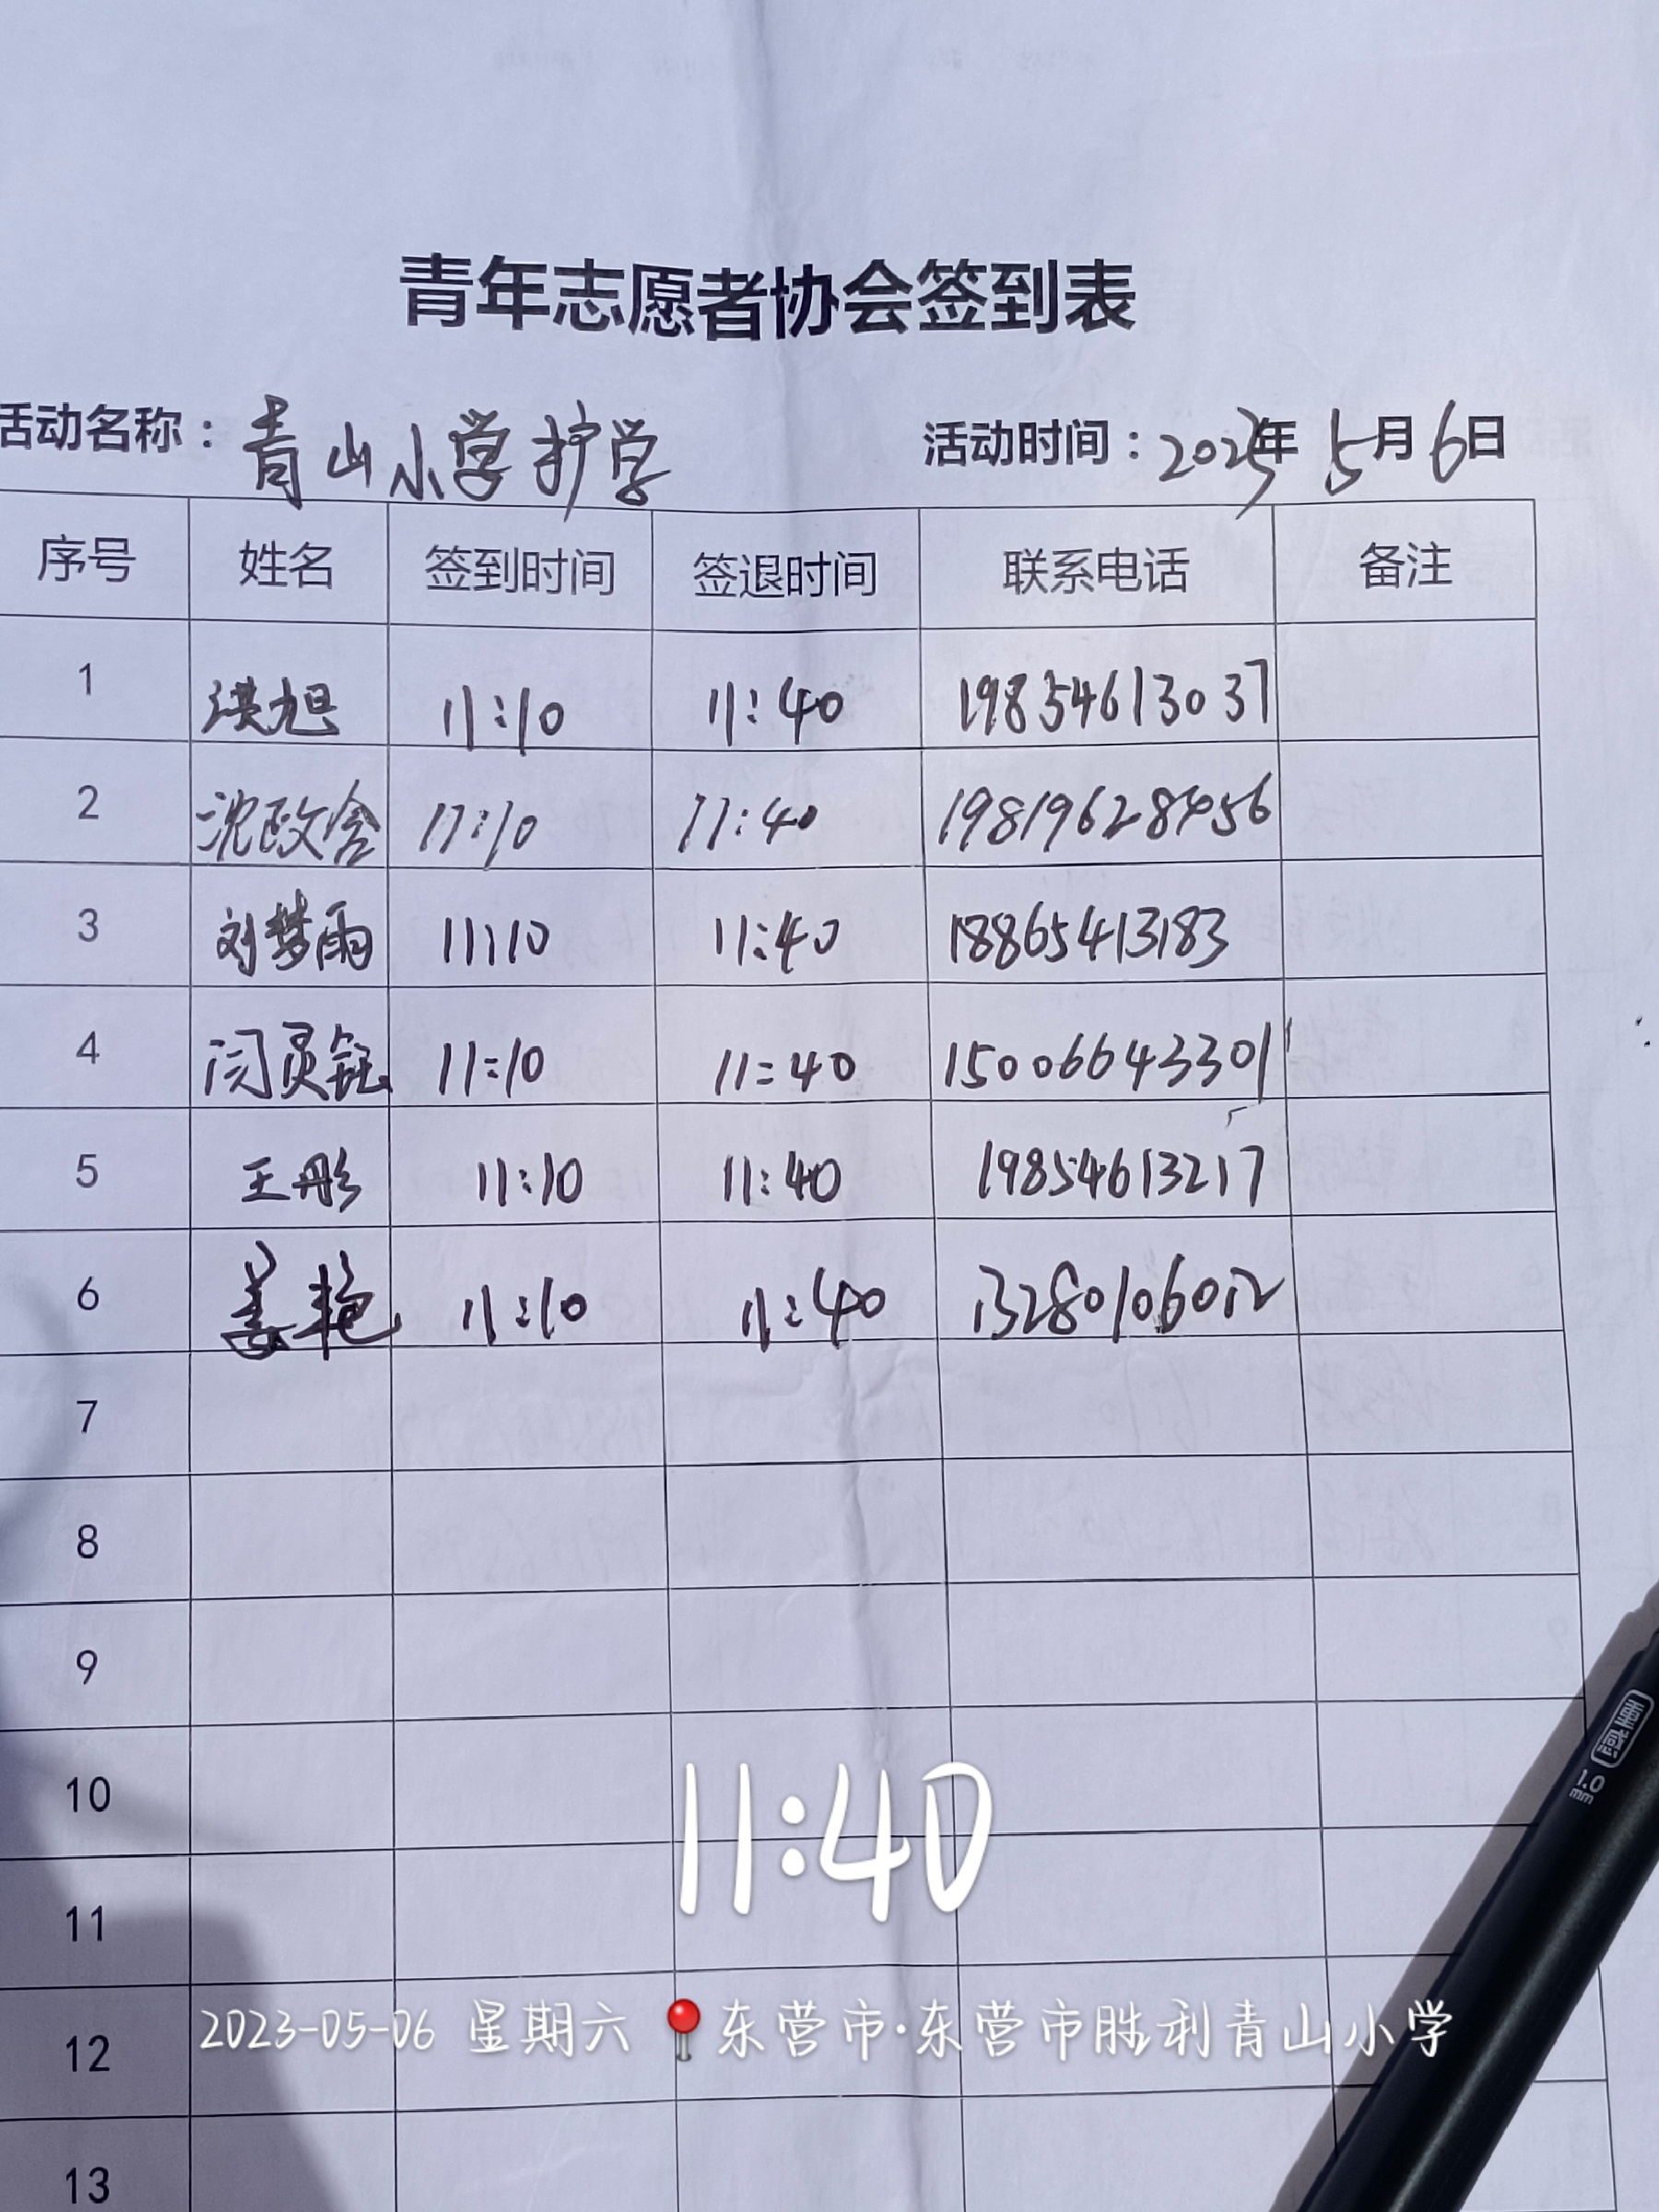 青年志愿者协会签到表
活动名称：青山小学护学 活动时间：2023年5月6日
序号 姓名 签到时间 签退时间 联系电话 备注
1 洪旭 11:10 11:40 19854613037
2 沈政含 11:10 11:40 19819628456
3 刘梦雨 11:10 11:40 18865413183
4 闫灵钰 11:10 11:40 15006643301
5 王彤 11:10 11:40 19854613217
6 姜艳 11:10 11:40 13280106012
7
8
9
10
11:40
11
2023-05-06 星期六 东营市·东营市胜利青山小学
12
13
1.0
mm